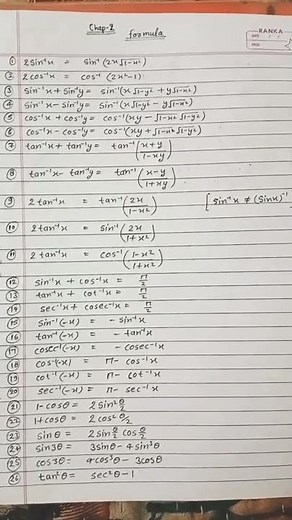 Chap-2
RANKA
formula
① 2sin⁻¹x = sin⁻¹(2x√1-x²)
② 2cos⁻¹x = cos⁻¹(2x²-1)
③ sin⁻¹x + sin⁻¹y = sin⁻¹(x√1-y² + y√1-x²)
④ sin⁻¹x - sin⁻¹y = sin⁻¹(x√1-y² - y√1-x²)
⑤ cos⁻¹x + cos⁻¹y = cos⁻¹(xy - √1-x² √1-y²)
⑥ cos⁻¹x - cos⁻¹y = cos⁻¹(xy + √1-x² √1-y²)
⑦ tan⁻¹x + tan⁻¹y = tan⁻¹(x+y/1-xy)
⑧ tan⁻¹x - tan⁻¹y = tan⁻¹(x-y/1+xy)
⑨ 2tan⁻¹x = tan⁻¹(2x/1-x²) [sin⁻¹x ≠ (sinx)⁻¹
⑩ 2tan⁻¹x = sin⁻¹(2x/1+x²)
⑪ 2tan⁻¹x = cos⁻¹(1-x²/1+x²)
⑫ sin⁻¹x + cos⁻¹x = π/2
⑬ tan⁻¹x + cot⁻¹x = π/2
⑭ sec⁻¹x + cosec⁻¹x = π/2
⑮ sin⁻¹(-x) = - sin⁻¹x
⑯ tan⁻¹(-x) = - tan⁻¹x
⑰ cosec⁻¹(-x) = - cosec⁻¹x
⑱ cos⁻¹(-x) = π- cos⁻¹x
⑲ cot⁻¹(-x) = π- cot⁻¹x
⑳ sec⁻¹(-x) = π- sec⁻¹x
㉑ 1-cosθ = 2sin²θ/2
㉒ 1+cosθ = 2cos²θ/2
㉓ sinθ = 2sinθ/2 cosθ/2
㉔ sin3θ = 3sinθ-4sin³θ
㉕ cos3θ = 4cos³θ-3cosθ
㉖ tan²θ = sec²θ-1